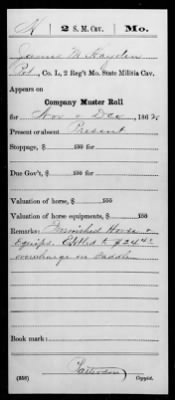 H | 2 S. M. Cav. | Mo.
James M. Hayden
Pvt., Co. L, 2 Reg't Mo. State Militia Cav.
Appears on
Company Muster Roll
for Nov & Dec, 1862
Present or absent Present
Stoppage, $ 100 for
Due Gov't, $ 100 for
Valuation of horse, $ 100
Valuation of horse equipments, $ 100
Remarks: Furnished Horse &
Equips. Entitled to $24.40
overcharge on Saddle
Book mark:
(358) Copyist.